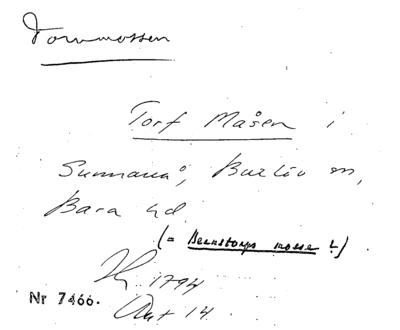 Tornmossen
Torf Måsen i
Sunnanå, Burlöv sn,
Bara hd.
(= Bernstorps mosse?)
1794
Nr 7466.
Akt 14.